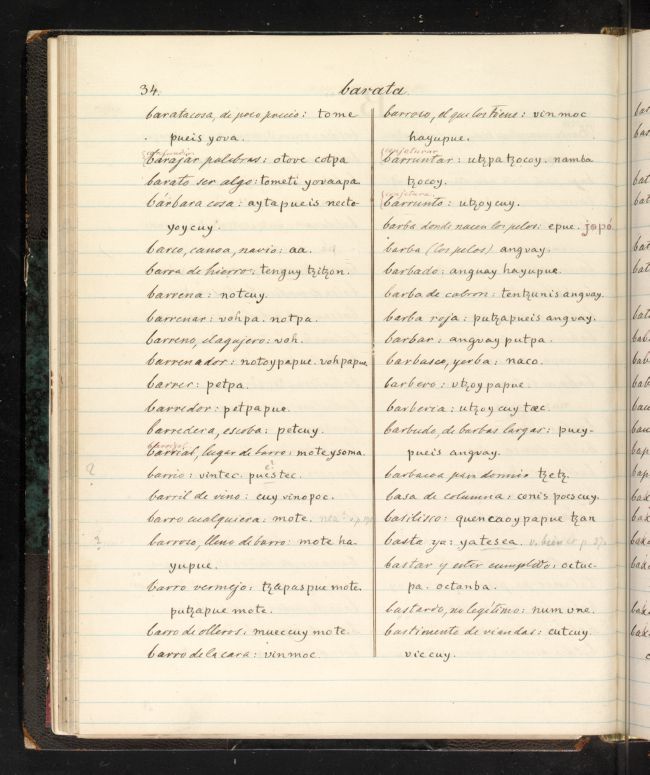 34.
barata
barata cosa, de poco precio: tome
pueis yova.
barajar palabras: otove cotpa
barato ser algo: tometi yovaapa
bárbara cosa: aytapueis necto-
yoycuy.
barco, canoa, navio: aa.
barra de hierro: tenguy tzitzon.
barrena: notcuy.
barrenar: vohpa. notpa.
barreno, el agujero: voh.
barrenador: notoypapue. vohpapue
barrer: petpa.
barredor: petpapue.
barredera, escoba: petcuy.
barrial, lugar de barro: moteysoma.
barrio: vintec. puestec.
barril de vino: cuy vinopoc.
barro cualquiera: mote.
barroso, lleno de barro: mote ha
yupue.
barro vermejo: tzapaspue mote.
putzapue mote.
barro de olleros: mueccuy mote.
barro de la cara: vinmoc
barroso, el que los tiene: vinmoc
hayupue.
conjeturar
barruntar: utzpa tzocoy. namba
tzocoy.
conjetura
barrunto: utzoycuy.
barba donde nacen los pelos: epue. jopó
barba (los pelos) anguay.
barbado: anguay hayupue.
barba de cabron: tentzunis anguay.
barba roja: putzapueis anguay.
barbar: anguay putpa.
barbasco, yerba: naco.
barbero: utzoypapue.
barberia: utzoycuy tæc.
barbudo, de barbas largas: puey-
pueis anguay.
barbacoa para dormir tzetz.
basa de columna: conis pocscuy.
basilisco: quencaoypapue tzan
basta ya: yatesea. v. bien
bastar y estar cumplido: octuc-
pa. octanba.
bastardo, no legítimo: num une.
bastimento de viandas: cutcuy.
viccuy.